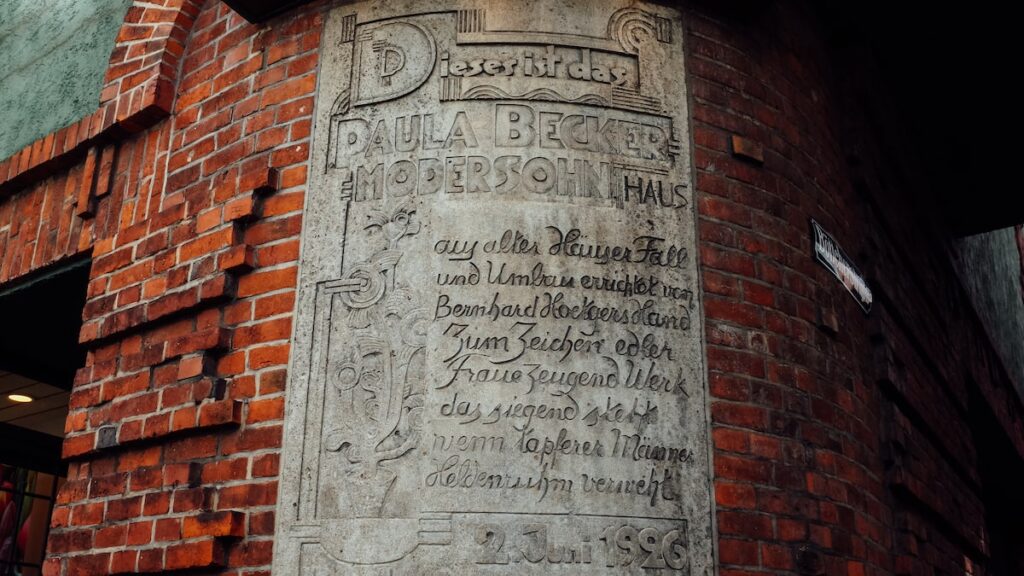 Dieses ist das
PAULA BECKER
MODERSOHN HAUS
aus alter Häuser Fall
und Umbau errichtet von
Bernhard Hoetgers Hand
Zum Zeichen edler
Fraue zeugend Werk
das siegend steht
wenn tapferer Männer
Heldenruhm verweht.
2. Juni 1926